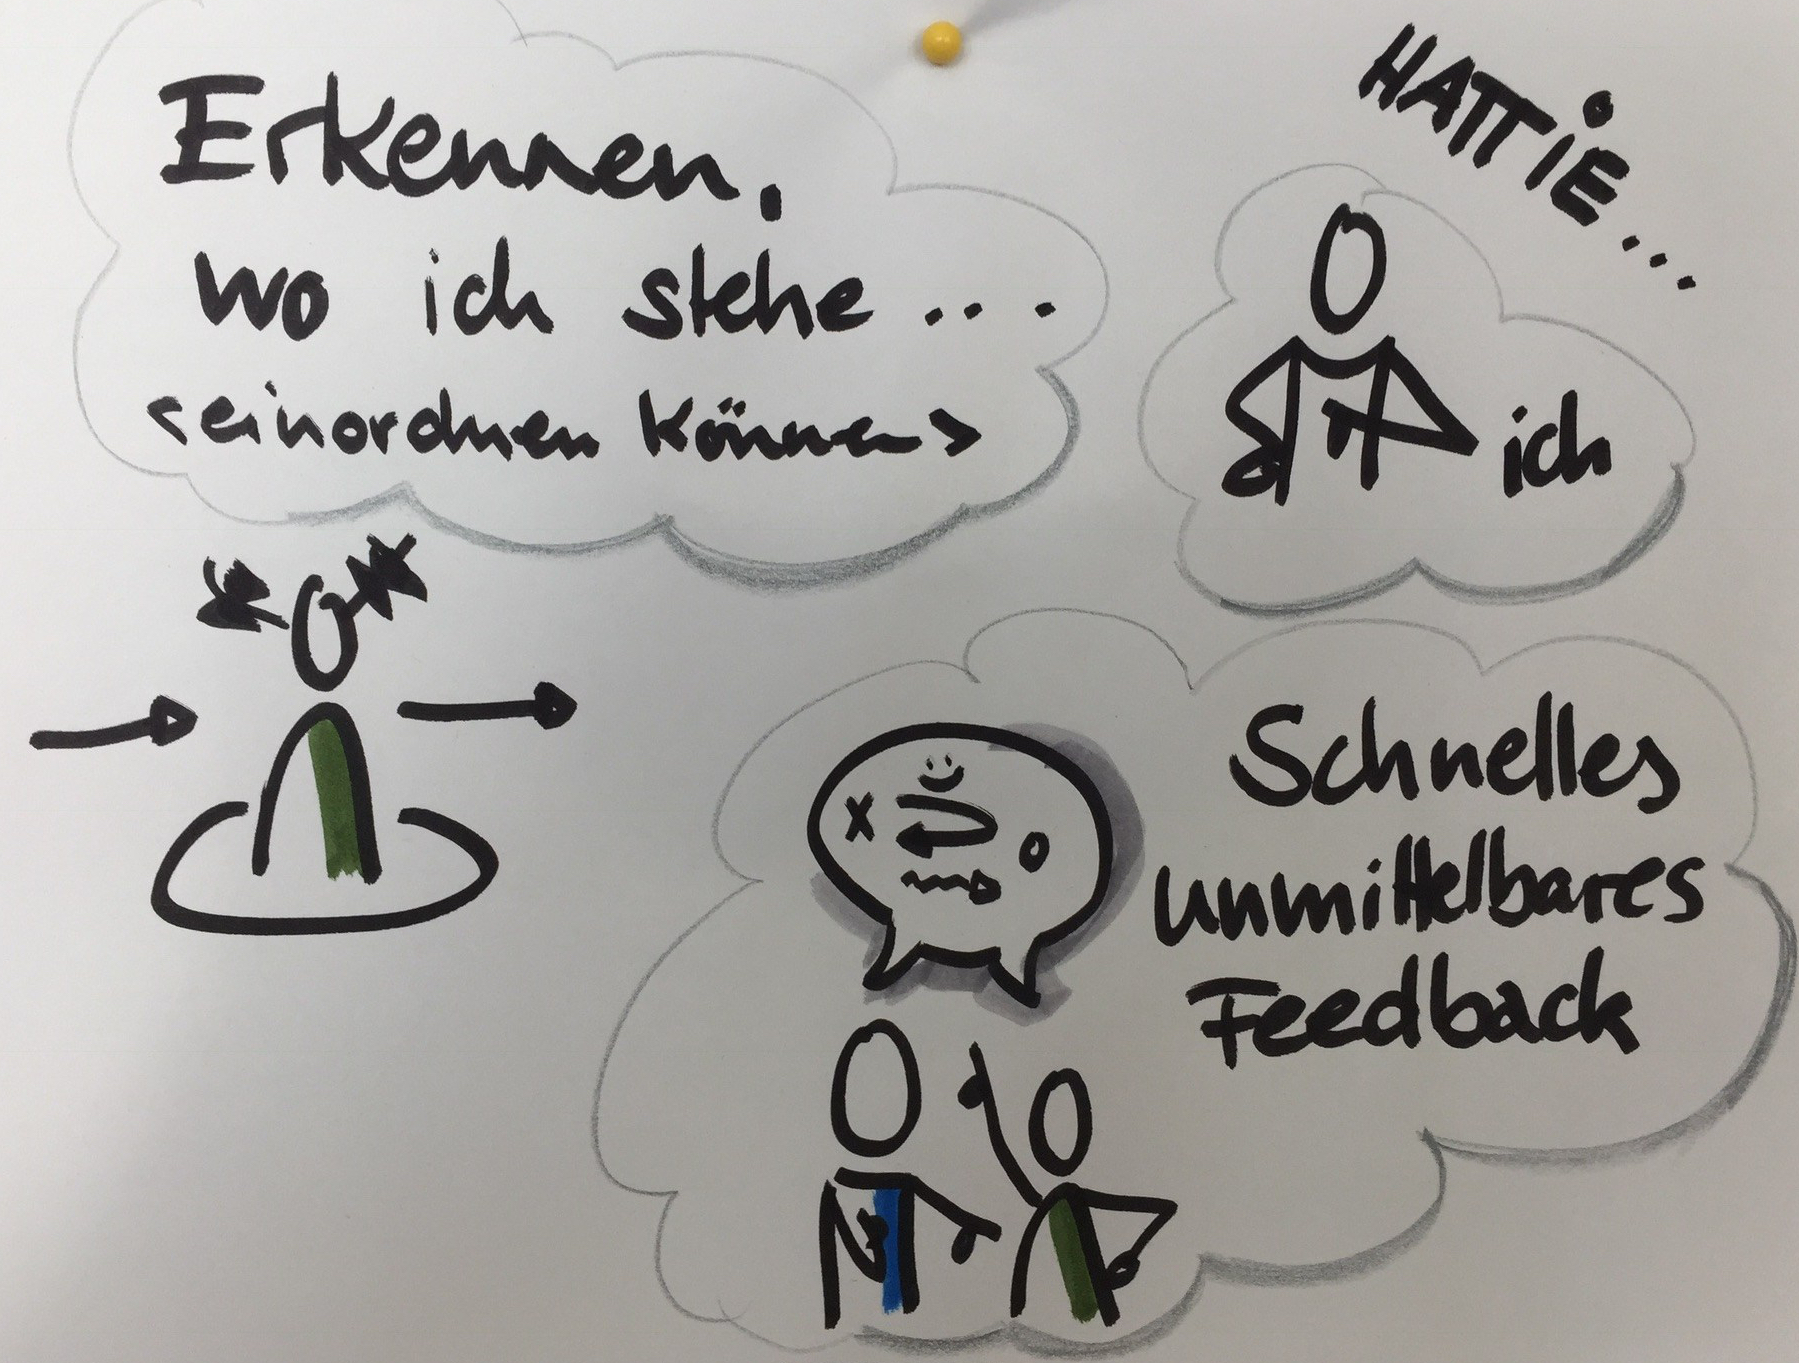 Erkennen,
wo ich stehe ....
<einordnen können>
HATTIE...
ich
Schnelles
unmittelbares
Feedback